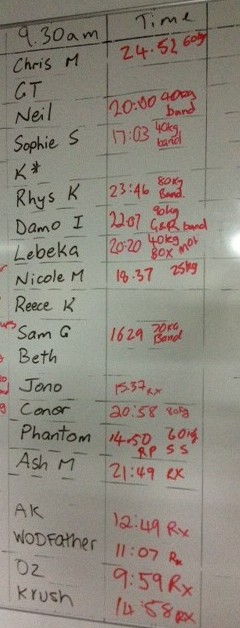 9.30am Time
Chris M 24.52 60kg
GT
Neil 20:00 40kg band
Sophie S 17:03 40kg band
K*
Rhys K 23:46 80kg Band
Damo I 22:07 90kg G&R band
Lebeka 20:20 40kg not BOX
Nicole M 18.37 25kg
Reece K
Sam G 1629 70kg Band
Beth
Jono 15.37 RX
Conor 20:58 80kg
Phantom 14.50 60kg RP SS
Ash M 21:49 RX
AK 12:49 Rx
WODFather 11:07 Rx
OZ 9:59 Rx
Krush 14:58 RX